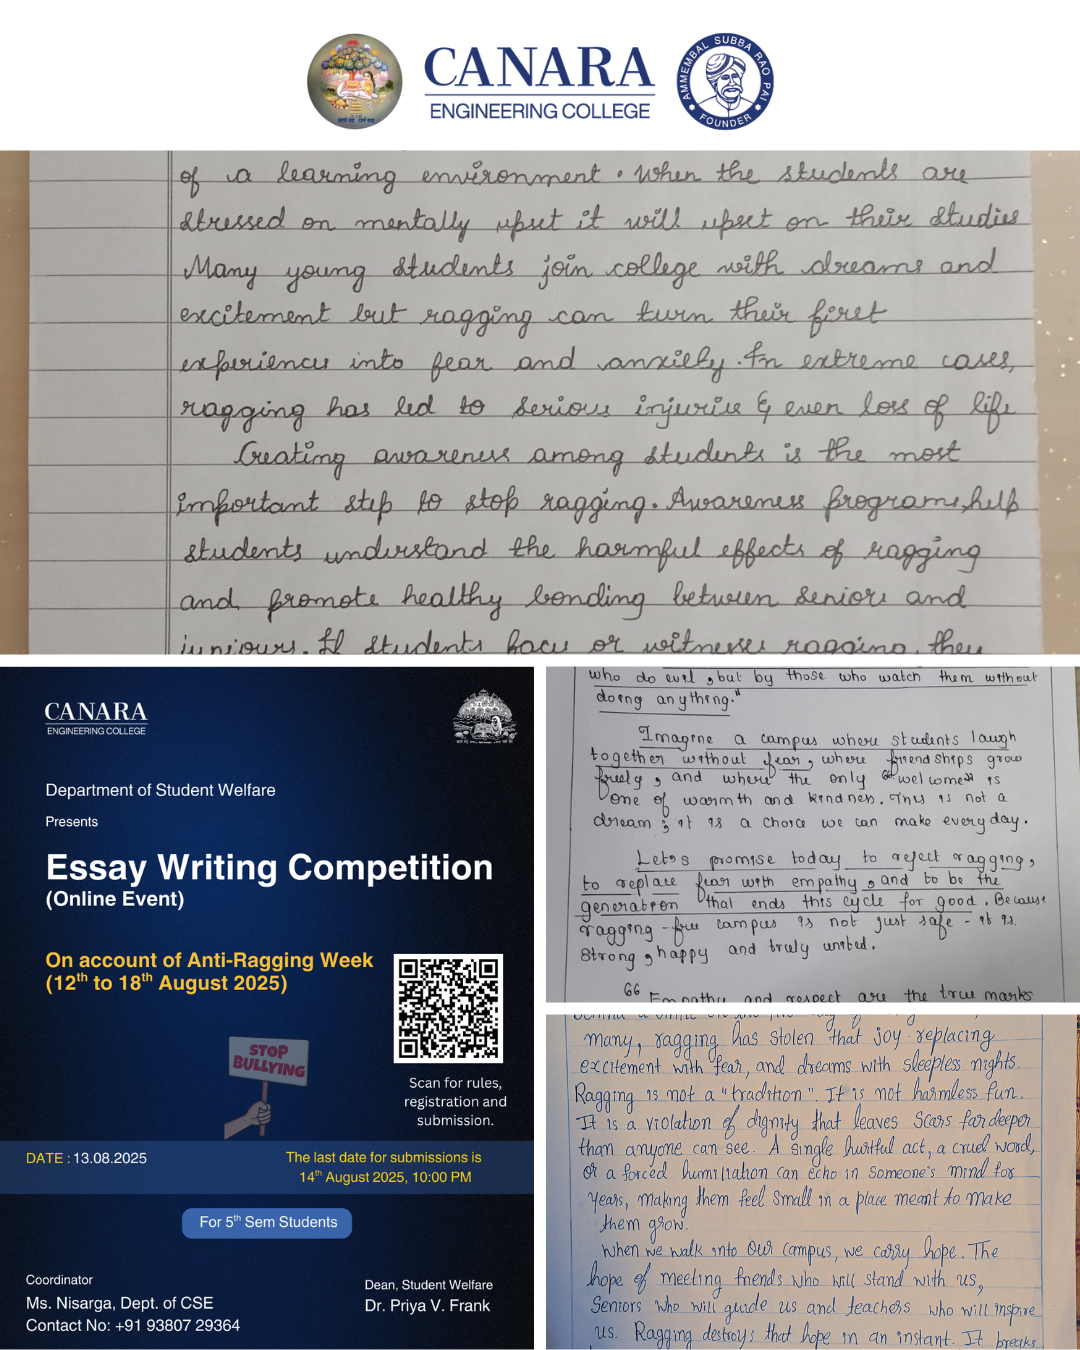 CANARA
ENGINEERING COLLEGE
AMMEMBAL SUBBA RAO PAI
FOUNDER
of a learning environment. When the students are
stressed on mentally upset it will upset on their studies
Many young students join college with dreams and
excitement but ragging can turn their first
experiences into fear and anxiety. In extreme cases,
ragging has led to serious injuries & even loss of life
Creating awareness among students is the most
important step to stop ragging. Awareness programs, help
students understand the harmful effects of ragging
and promote healthy bonding between seniors and
juniours. If students face or witnesses ragging, they
CANARA
ENGINEERING COLLEGE
Department of Student Welfare
Presents
Essay Writing Competition
(Online Event)
On account of Anti-Ragging Week
(12th to 18th August 2025)
STOP
BULLYING
Scan for rules,
registration and
submission.
DATE : 13.08.2025
The last date for submissions is
14th August 2025, 10:00 PM
For 5th Sem Students
Coordinator
Ms. Nisarga, Dept. of CSE
Contact No: +91 93807 29364
Dean, Student Welfare
Dr. Priya V. Frank
who do evil, but by those who watch them without
doing anything."
Imagine a campus where students laugh
together without fear, where friendships grow
freely, and where the only "welcome" is
one of warmth and kindness. This is not a
dream; it is a choice we can make everyday.
Let's promise today to reject ragging,
to replace fear with empathy, and to be the
generation that ends this cycle for good. Because
ragging-free campus is not just safe - it is
strong, happy and truly united.
"Empathy and respect are the true marks
many, ragging has stolen that joy replacing
excitement with fear, and dreams with sleepless nights.
Ragging is not a "tradition". It is not harmless fun.
It is a violation of dignity that leaves scars far deeper
than anyone can see. A single hurtful act, a cruel word,
or a forced humiliation can echo in someone's mind for
years, making them feel small in a place meant to make
them grow.
When we walk into our campus, we carry hope. The
hope of meeting friends who will stand with us,
Seniors who will guide us and teachers who will inspire
us. Ragging destroys that hope in an instant. It breaks